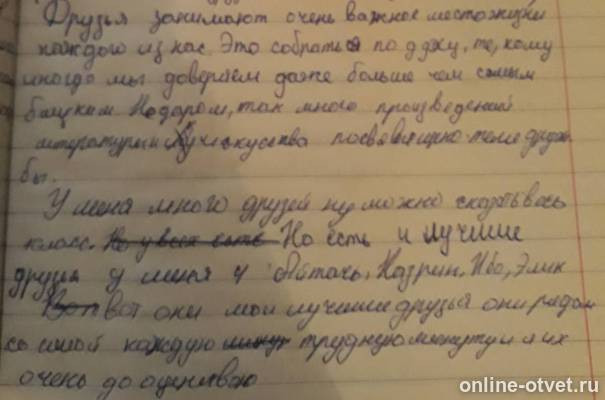 Друзья занимают очень важное место жизни
каждого из нас. Это собратья по духу, те, кому
иногда мы доверяем даже больше чем самым
блиским Недаром, так много произведений
литературы и искусства посвящено теме друж
бы.
У меня много друзей ну можно сказать весь
класс. Но у всех есть Но есть и лучшие
друзя у меня 4 Айтачь, Назрин, Ибо, Элик
Вот вот они мои лучшие друзья они рядом
со мной каждую минут трудную минуту и я их
очень до оцениваю
online-otvet.ru